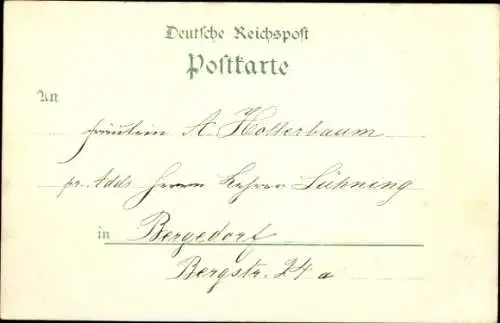 Deutsche Reichspost
Postkarte
An
Fräulein A. Hollerbaum
pr. Adds. Herrn Lehrer Lühning
in Bergedorf
Bergstr. 24 a